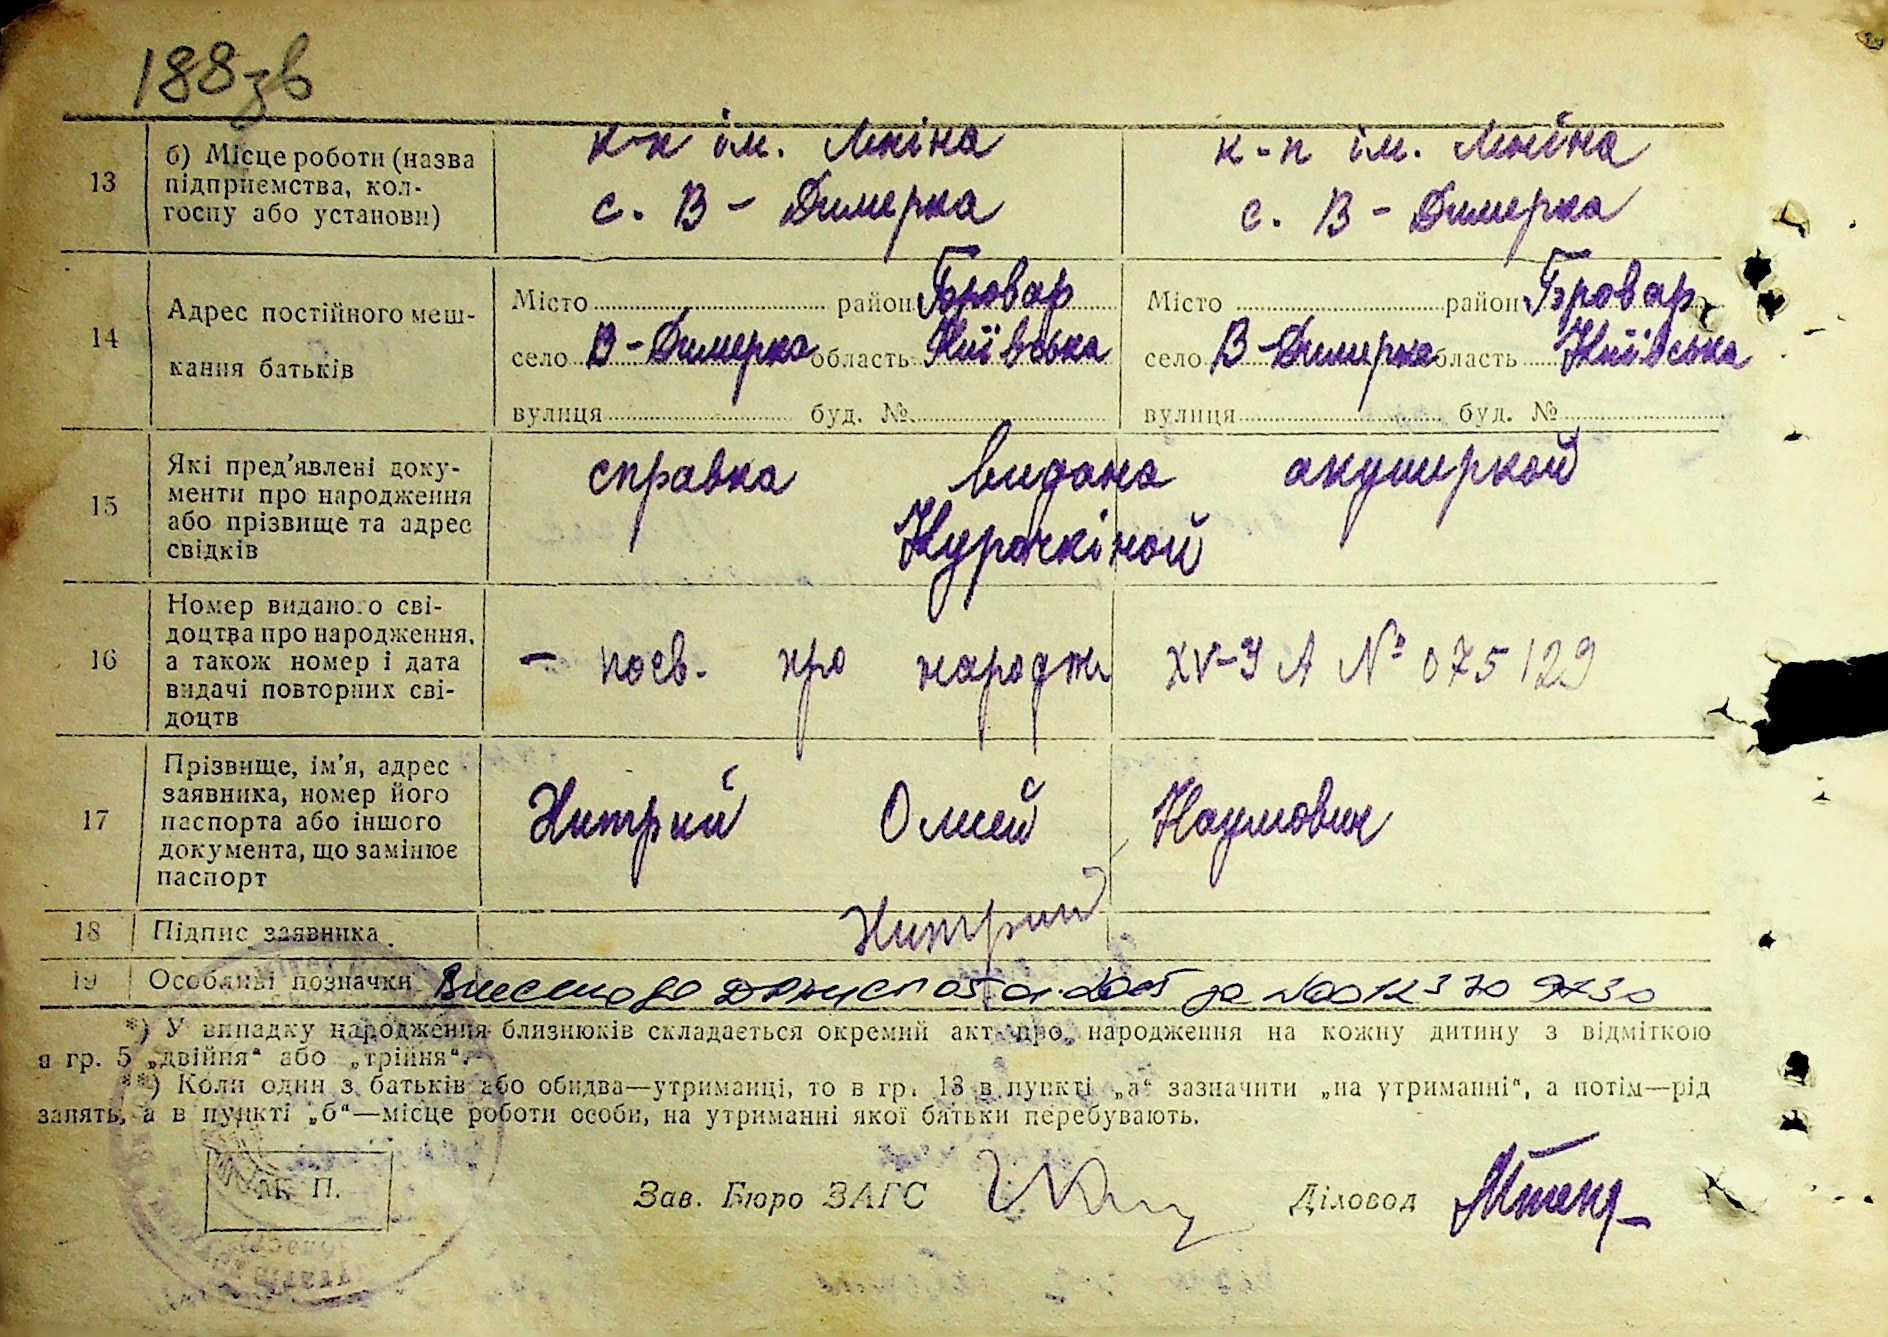 188зв
13 б) Місце роботи (назва підприємства, колгоспу або установи)
к-п ім. Леніна с. В-Димерка
к-п ім. Леніна с. В-Димерка
14 Адрес постійного мешкання батьків
Місто район Бровар
село В-Димерка область Київська
вулиця буд. №
Місто район Бровар
село В-Димерка область Київська
вулиця буд. №
15 Які пред'явлені документи про народження або прізвище та адрес свідків
справка видана акушеркой
Курочкіной
16 Номер виданого свідоцтва про народження, а також номер і дата видачі повторних свідоцтв
– посв. про народж XV-У А № 075129
17 Прізвище, ім'я, адрес заявника, номер його паспорта або іншого документа, що замінює паспорт
Хитрий Олексій Наумович
18 Підпис заявника
Хитрий
19 Особливі позначки Внесено до ДРАЦСГ за №00123709730
*) У випадку народження близнюків складається окремий акт про народження на кожну дитину з відміткою
в гр. 5 „двійня“ або „трійня“.
**) Коли один з батьків або обидва—утриманці, то в гр. 13 в пункті „а“ зазначити „на утриманні“, а потім—рід
занять, а в пункті „б“—місце роботи особи, на утриманні якої батьки перебувають.
М. П.
Зав. Бюро ЗАГС
Діловод